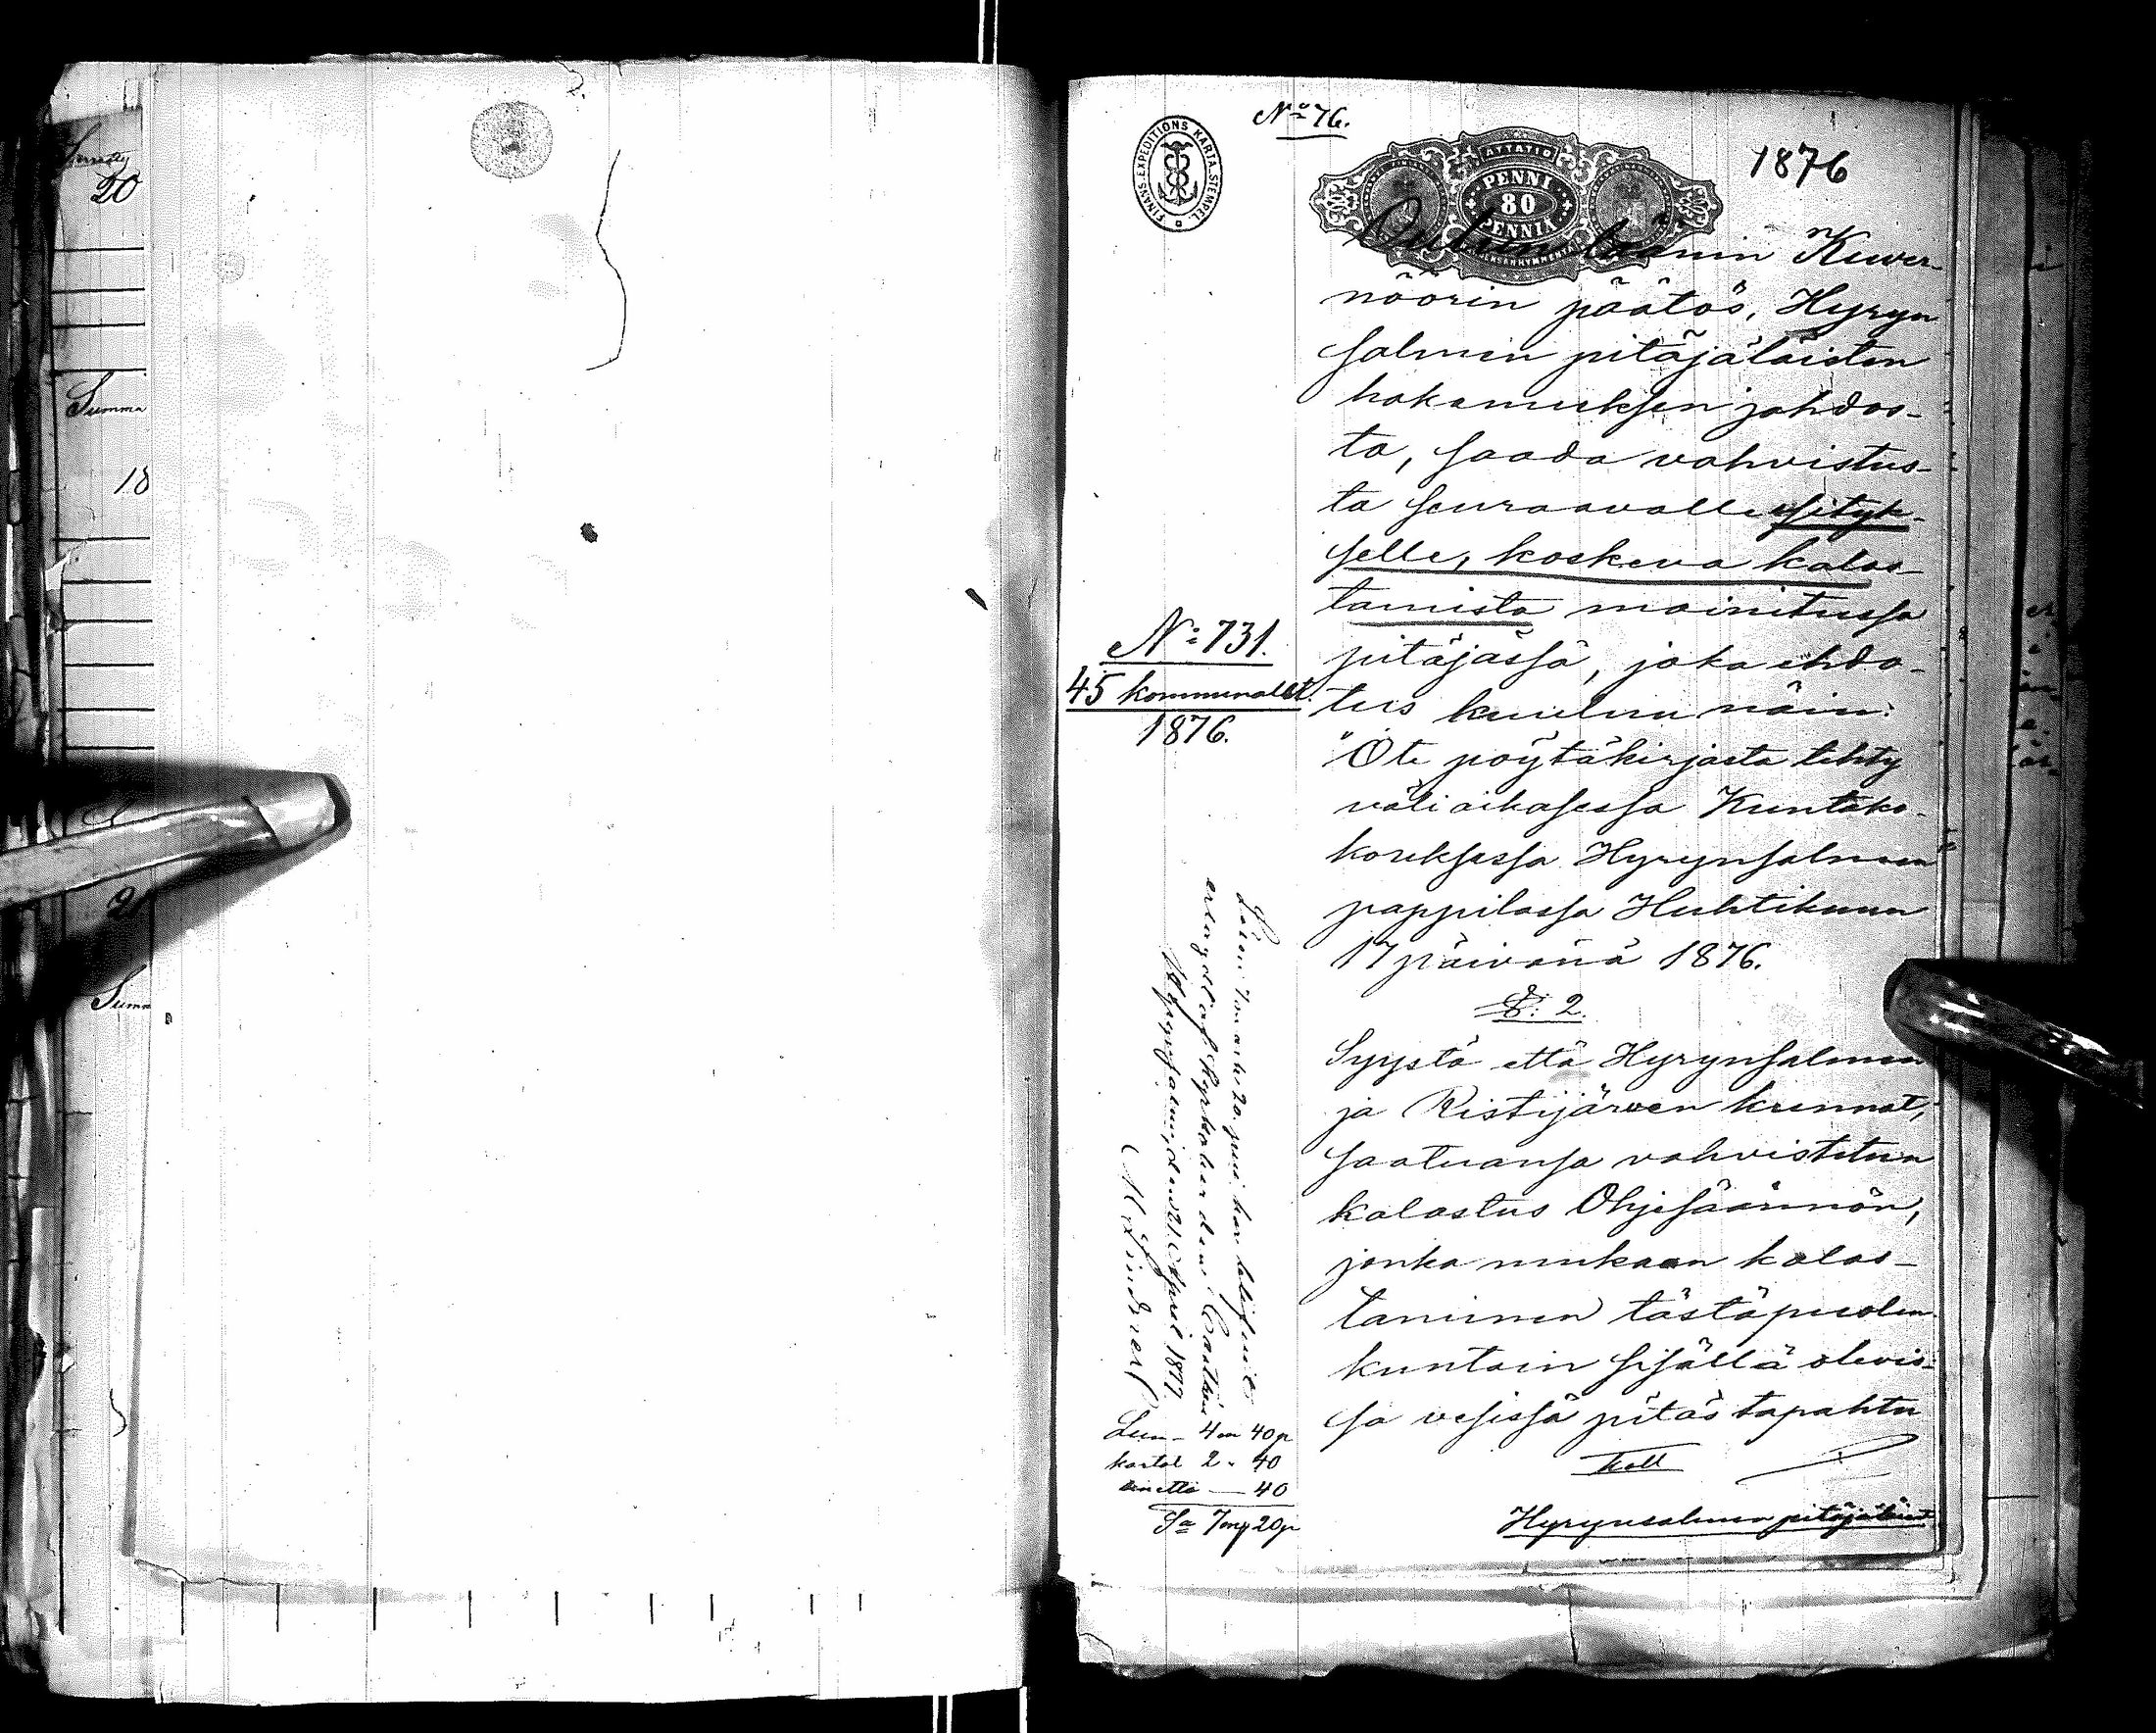 Summa
20
Summa
18
Summ
No 76.
1876
FINANS-EXPEDITIONS KARTA STEMPEL
PENNI
80
PENNIÄ
Oulun läänin Kuver-
nöörin päätös, Hyryn
salmen pitäjäläisten
hakemuksen johdos-
ta, saada vahvistus-
ta seuraavalle esityk-
selle, koskeva kalas-
tamista mainitussa
pitäjässä, joka ehdo-
tus kuuluu näin:
"Ote pöytäkirjasta tehty
väliaikasessa Kuntako-
kouksessa Hyrynsalmen
pappilassa Huhtikuun
17 päivänä 1876.
§: 2.
Syystä että Hyrynsalmen
ja Ristijärven kunnat,
saatuansa vahvistetun
kalastus Ohjesäännön,
jonka mukaan kalas-
taminen tästäpuolen
kuntain sisällä olevis-
sa vesissä pitäs tapahtu
Koll
Hyrynsalmen pitäjäläist
No 731.
45 kommunalet.
1876.
Lösen 7 mark 20 pen: har
erlagdt af Kyrkoherden Castrén
Hyrynsalmi, den 21 April 1877.
Lun - 4 m 40 p
kartal 2 " 40
— 40
Sa 7 mk 20 p